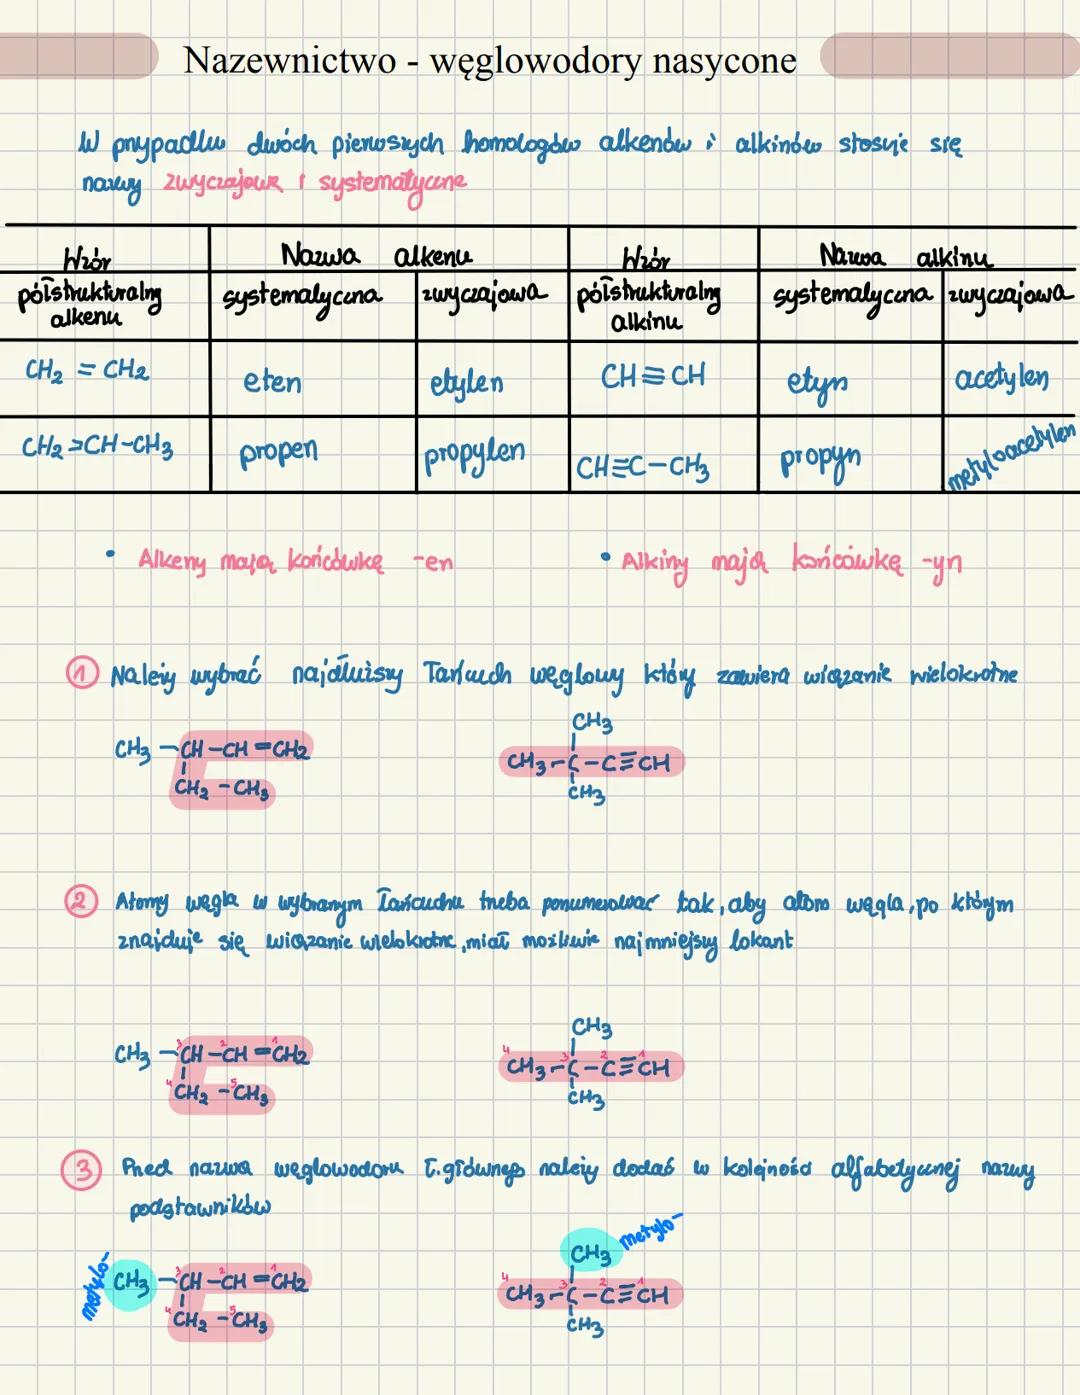 Nazewnictwo - węglowodory nasycone
W przypadku dwóch pierwszych homologów alkenów i alkinów stosuje się
nazwy zwyczajowe i systematyczne
Wzór półstrukturalny alkenu
Nazwa alkenu
systematyczna
zwyczajowa
Wzór półstrukturalny alkinu
Nazwa alkinu
systematyczna
zwyczajowa
CH₂ = CH₂ eten etylen CH≡CH etyn acetylen
CH₂=CH-CH₃ propen propylen CH≡C-CH₃ propyn metyloacetylen
• Alkeny mają końcówkę -en
• Alkiny mają końcówkę -yn
① Należy wybrać najdłuższy łańcuch węglowy który zawiera wiązanie wielokrotne
CH₃ -CH-CH=CH₂
CH₂ -CH₃
CH₃
CH₃-C-C≡CH
CH₃
② Atomy węgla w wybranym łańcuchu trzeba ponumerować tak, aby atom węgla, po którym
znajduje się wiązanie wielokrotne, miał możliwie najmniejszy lokant
3 2 1
CH₃ -CH-CH=CH₂
4 5
CH₂ -CH₃
CH₃
4 3 2 1
CH₃-C-C≡CH
CH₃
③ Przed nazwą węglowodoru ł.głównego należy dodać w kolejności alfabetycznej nazwy
podstawników
metylo-
3 2 1
CH₃ -CH-CH=CH₂
4 5
CH₂ -CH₃
metylo-
CH₃
4 3 2 1
CH₃-C-C≡CH
CH₃